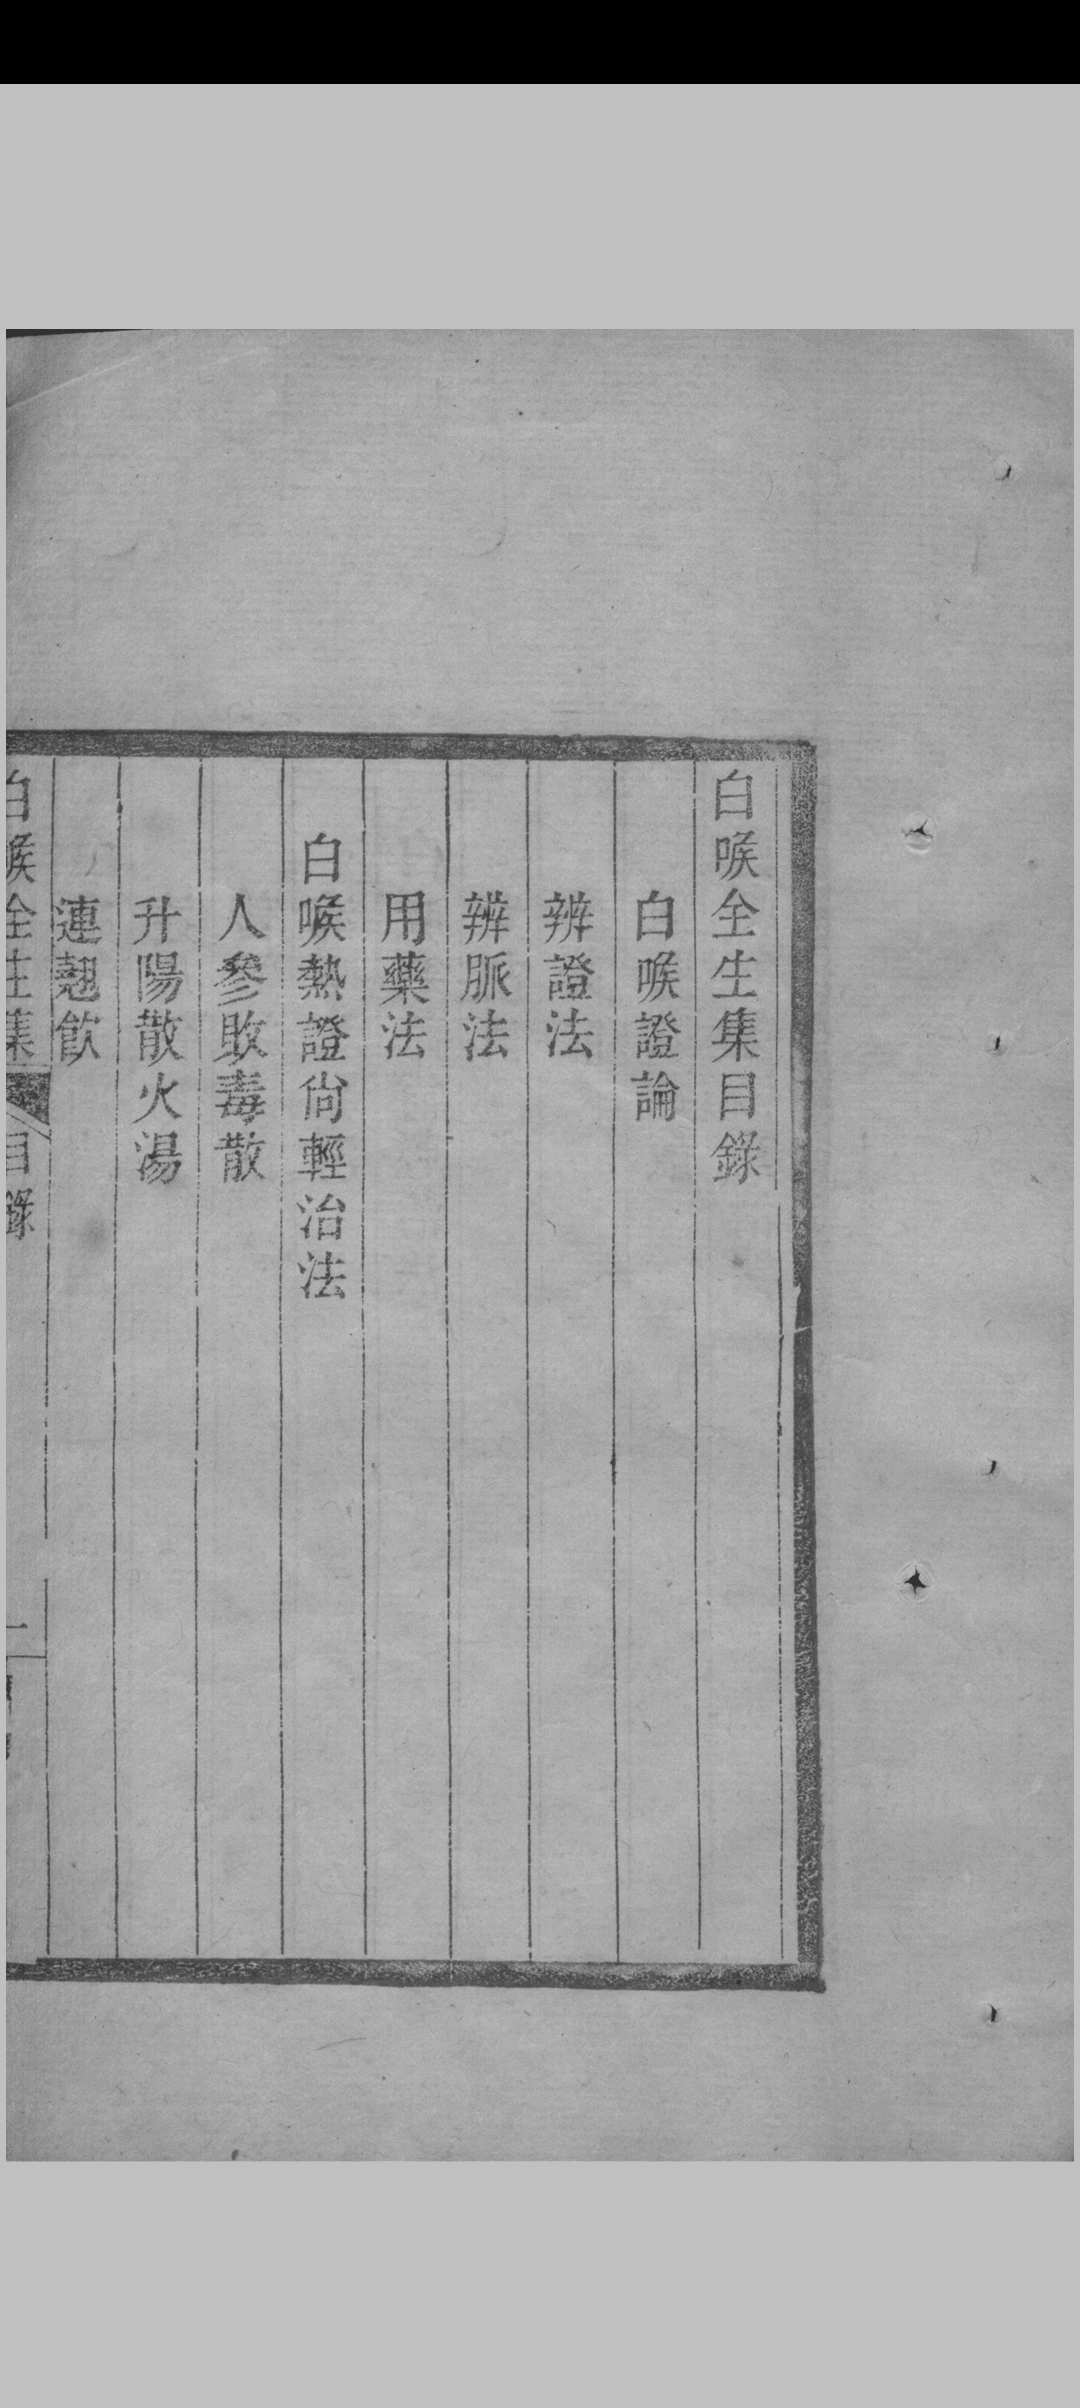 白喉全生集目錄
白喉證論
辨證法
辨脈法
用藥法
白喉熱證尙輕治法
人參敗毒散
升陽散火湯
連翹飮
白喉全生集
目錄
一